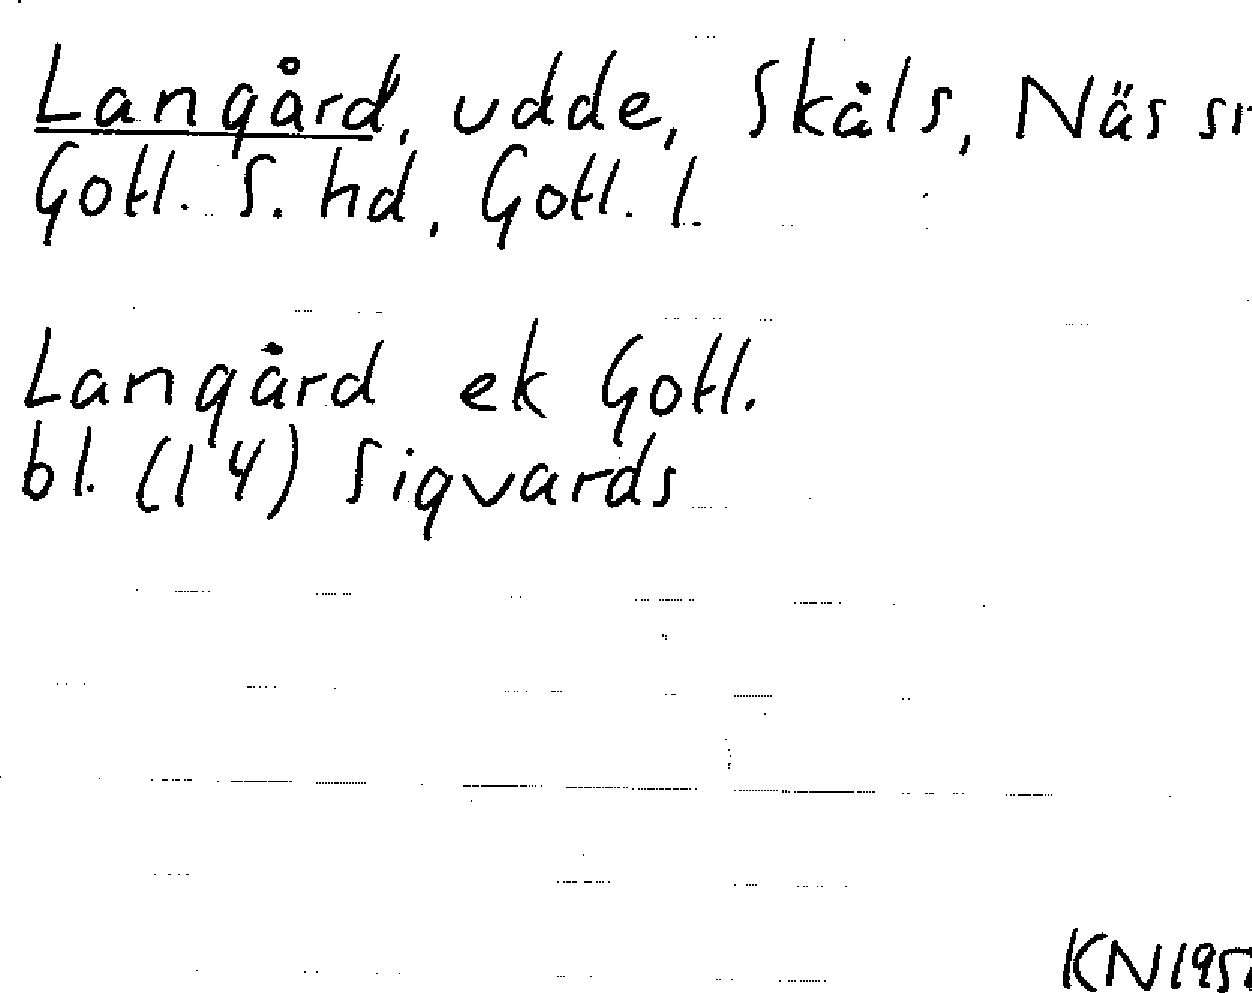 Langård, udde, Skåls, Näs sn
Gotl. S. hd, Gotl. l.
Langård ek Gotl.
bl. (14) Sigvards